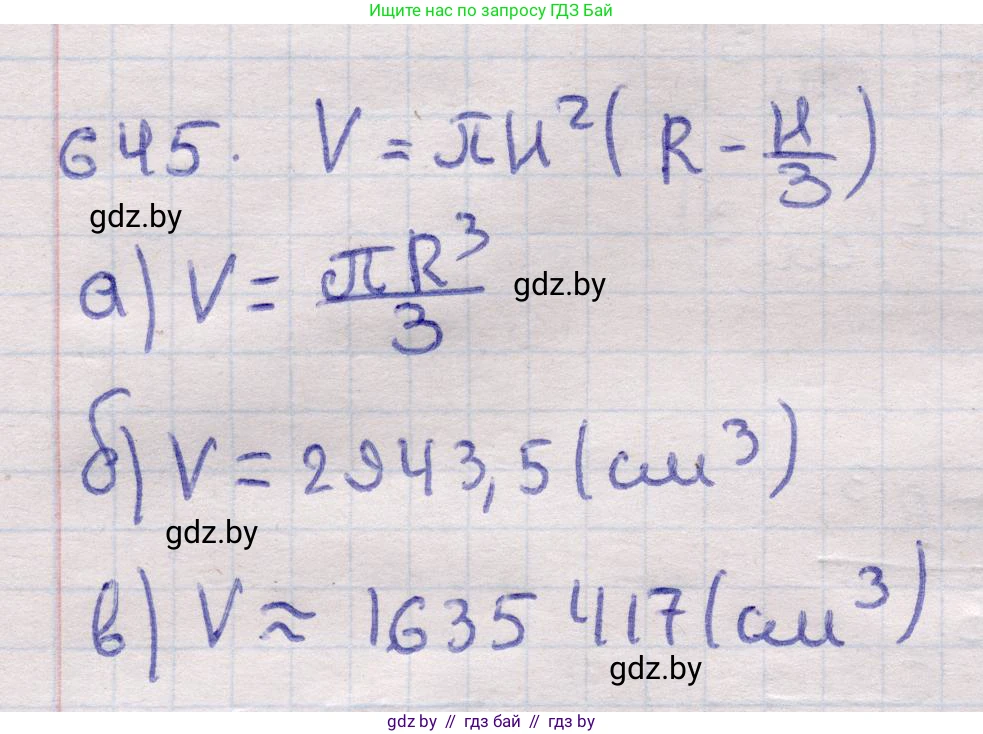 Ищите нас по запросу ГДЗ Бай
645. V = πH²(R - H/3)
gdz.by
а) V = πR³/3
gdz.by
б) V = 2943,5 (см³)
gdz.by
в) V ≈ 1635 417 (см³)
gdz.by
gdz by // гдз бай // гдз by